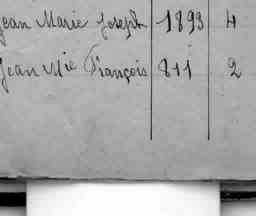 Jean Marie Joseph 1893 4
Jean Mie François 811 2